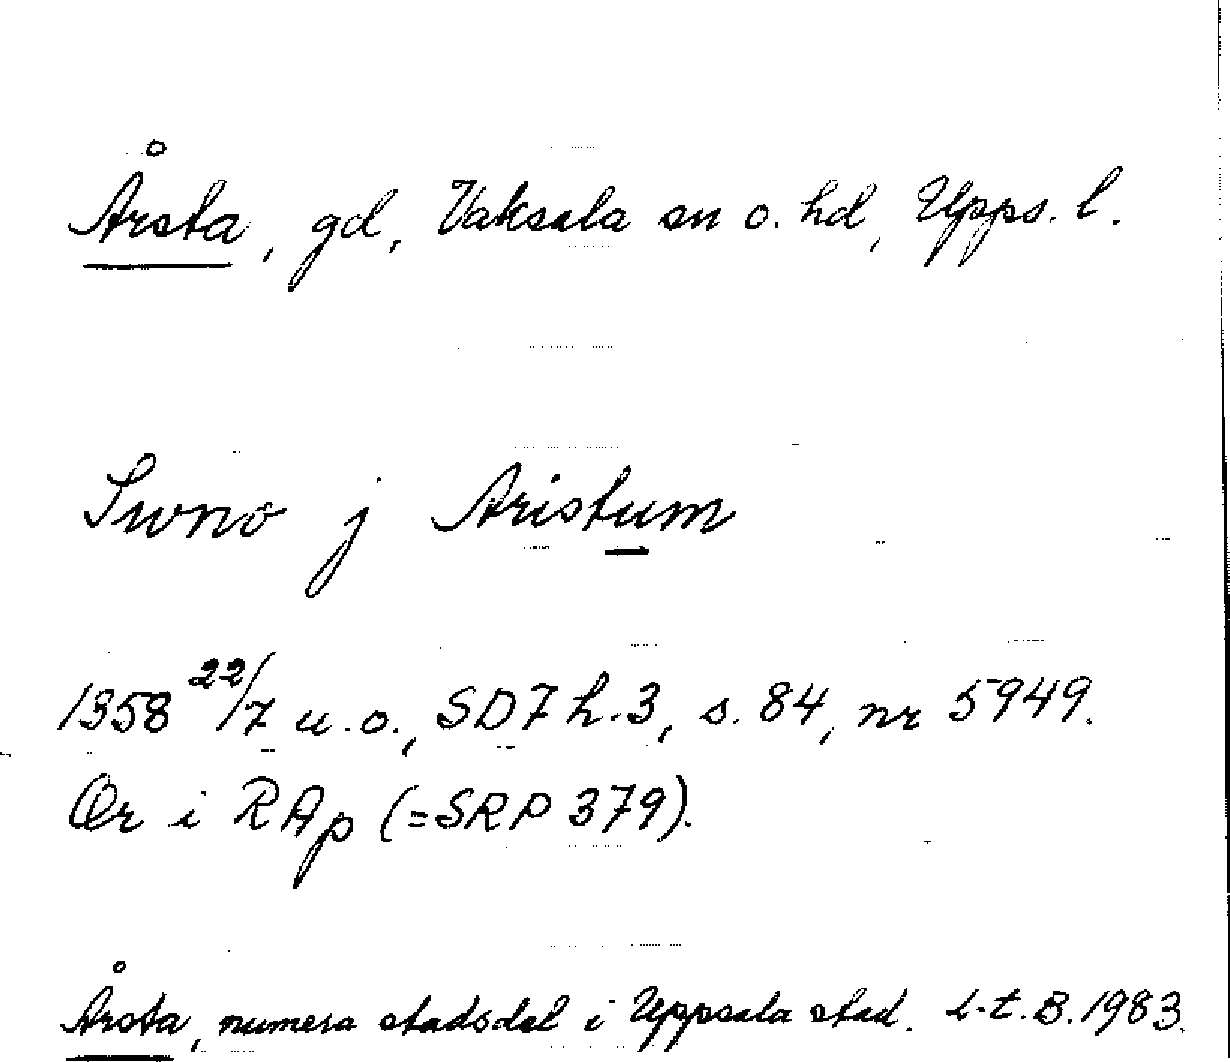 Årsta, gd, Vaksala sn o. hd, Upps. l.
Swno j Aristum
1358 22/7 u.o., SD7 h.3, s. 84, nr 5949.
Or i RAp (=SRP 379).
Årsta, numera stadsdel i Uppsala stad. L-t. B. 1983.